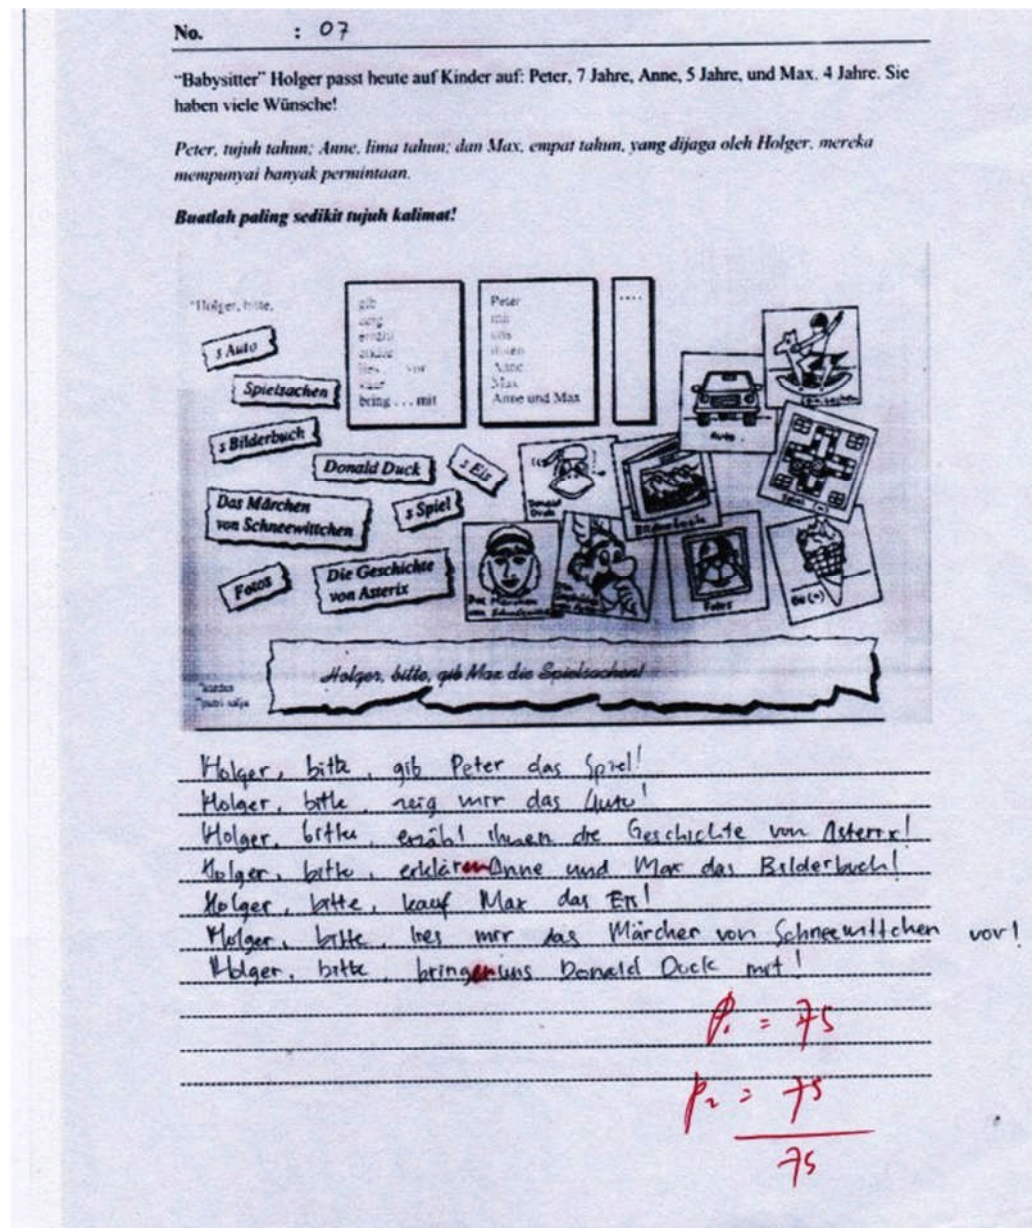 No. : 07
“Babysitter” Holger passt heute auf Kinder auf: Peter, 7 Jahre, Anne, 5 Jahre, und Max. 4 Jahre. Sie
haben viele Wünsche!
Peter, tujuh tahun; Anne, lima tahun; dan Max, empat tahun, yang dijaga oleh Holger, mereka
mempunyai banyak permintaan.
Buatlah paling sedikit tujuh kalimat!
“Holger, bitte,
gib
vor
bring . . . mit
Peter
mir
uns
ihnen
Anne
Max
Anne und Max
....
s Auto
Spielsachen
s Bilderbuch
Donald Duck
s Eis
Das Märchen
von Schneewittchen
s Spiel
Fotos
Die Geschichte
von Asterix
Auto
Spiel
Donald
Duck
Bilderbuch
Das Märchen
Fotos
Eis (-)
Holger, bitte, gib Max die Spielsachen!
putri salju
Holger, bitte, gib Peter das Spiel!
Holger, bitte, zeig mir das Auto!
Holger, bitte, erzähl ihnen die Geschichte von Asterix!
Holger, bitte, erklären Anne und Max das Bilderbuch!
Holger, bitte, kauf Max das Eis!
Holger, bitte, lies mir das Märchen von Schneewittchen vor!
Holger, bitte, bringen uns Donald Duck mit!
P1 = 75
P2 = 75
75